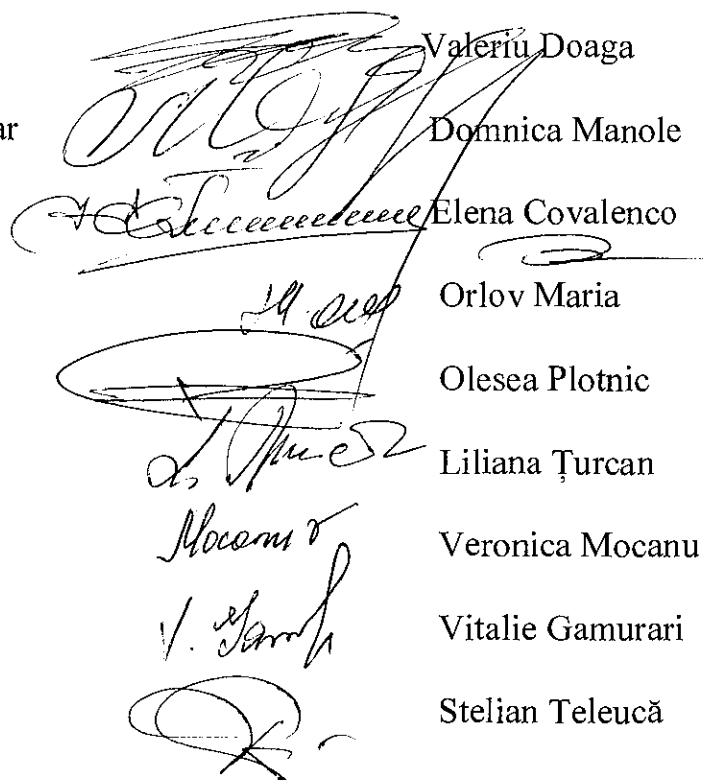 Valeriu Doaga
ar Domnica Manole
Elena Covalenco
Orlov Maria
Olesea Plotnic
Liliana Țurcan
Mocanu V Veronica Mocanu
Vitalie Gamurari
Stelian Teleucă